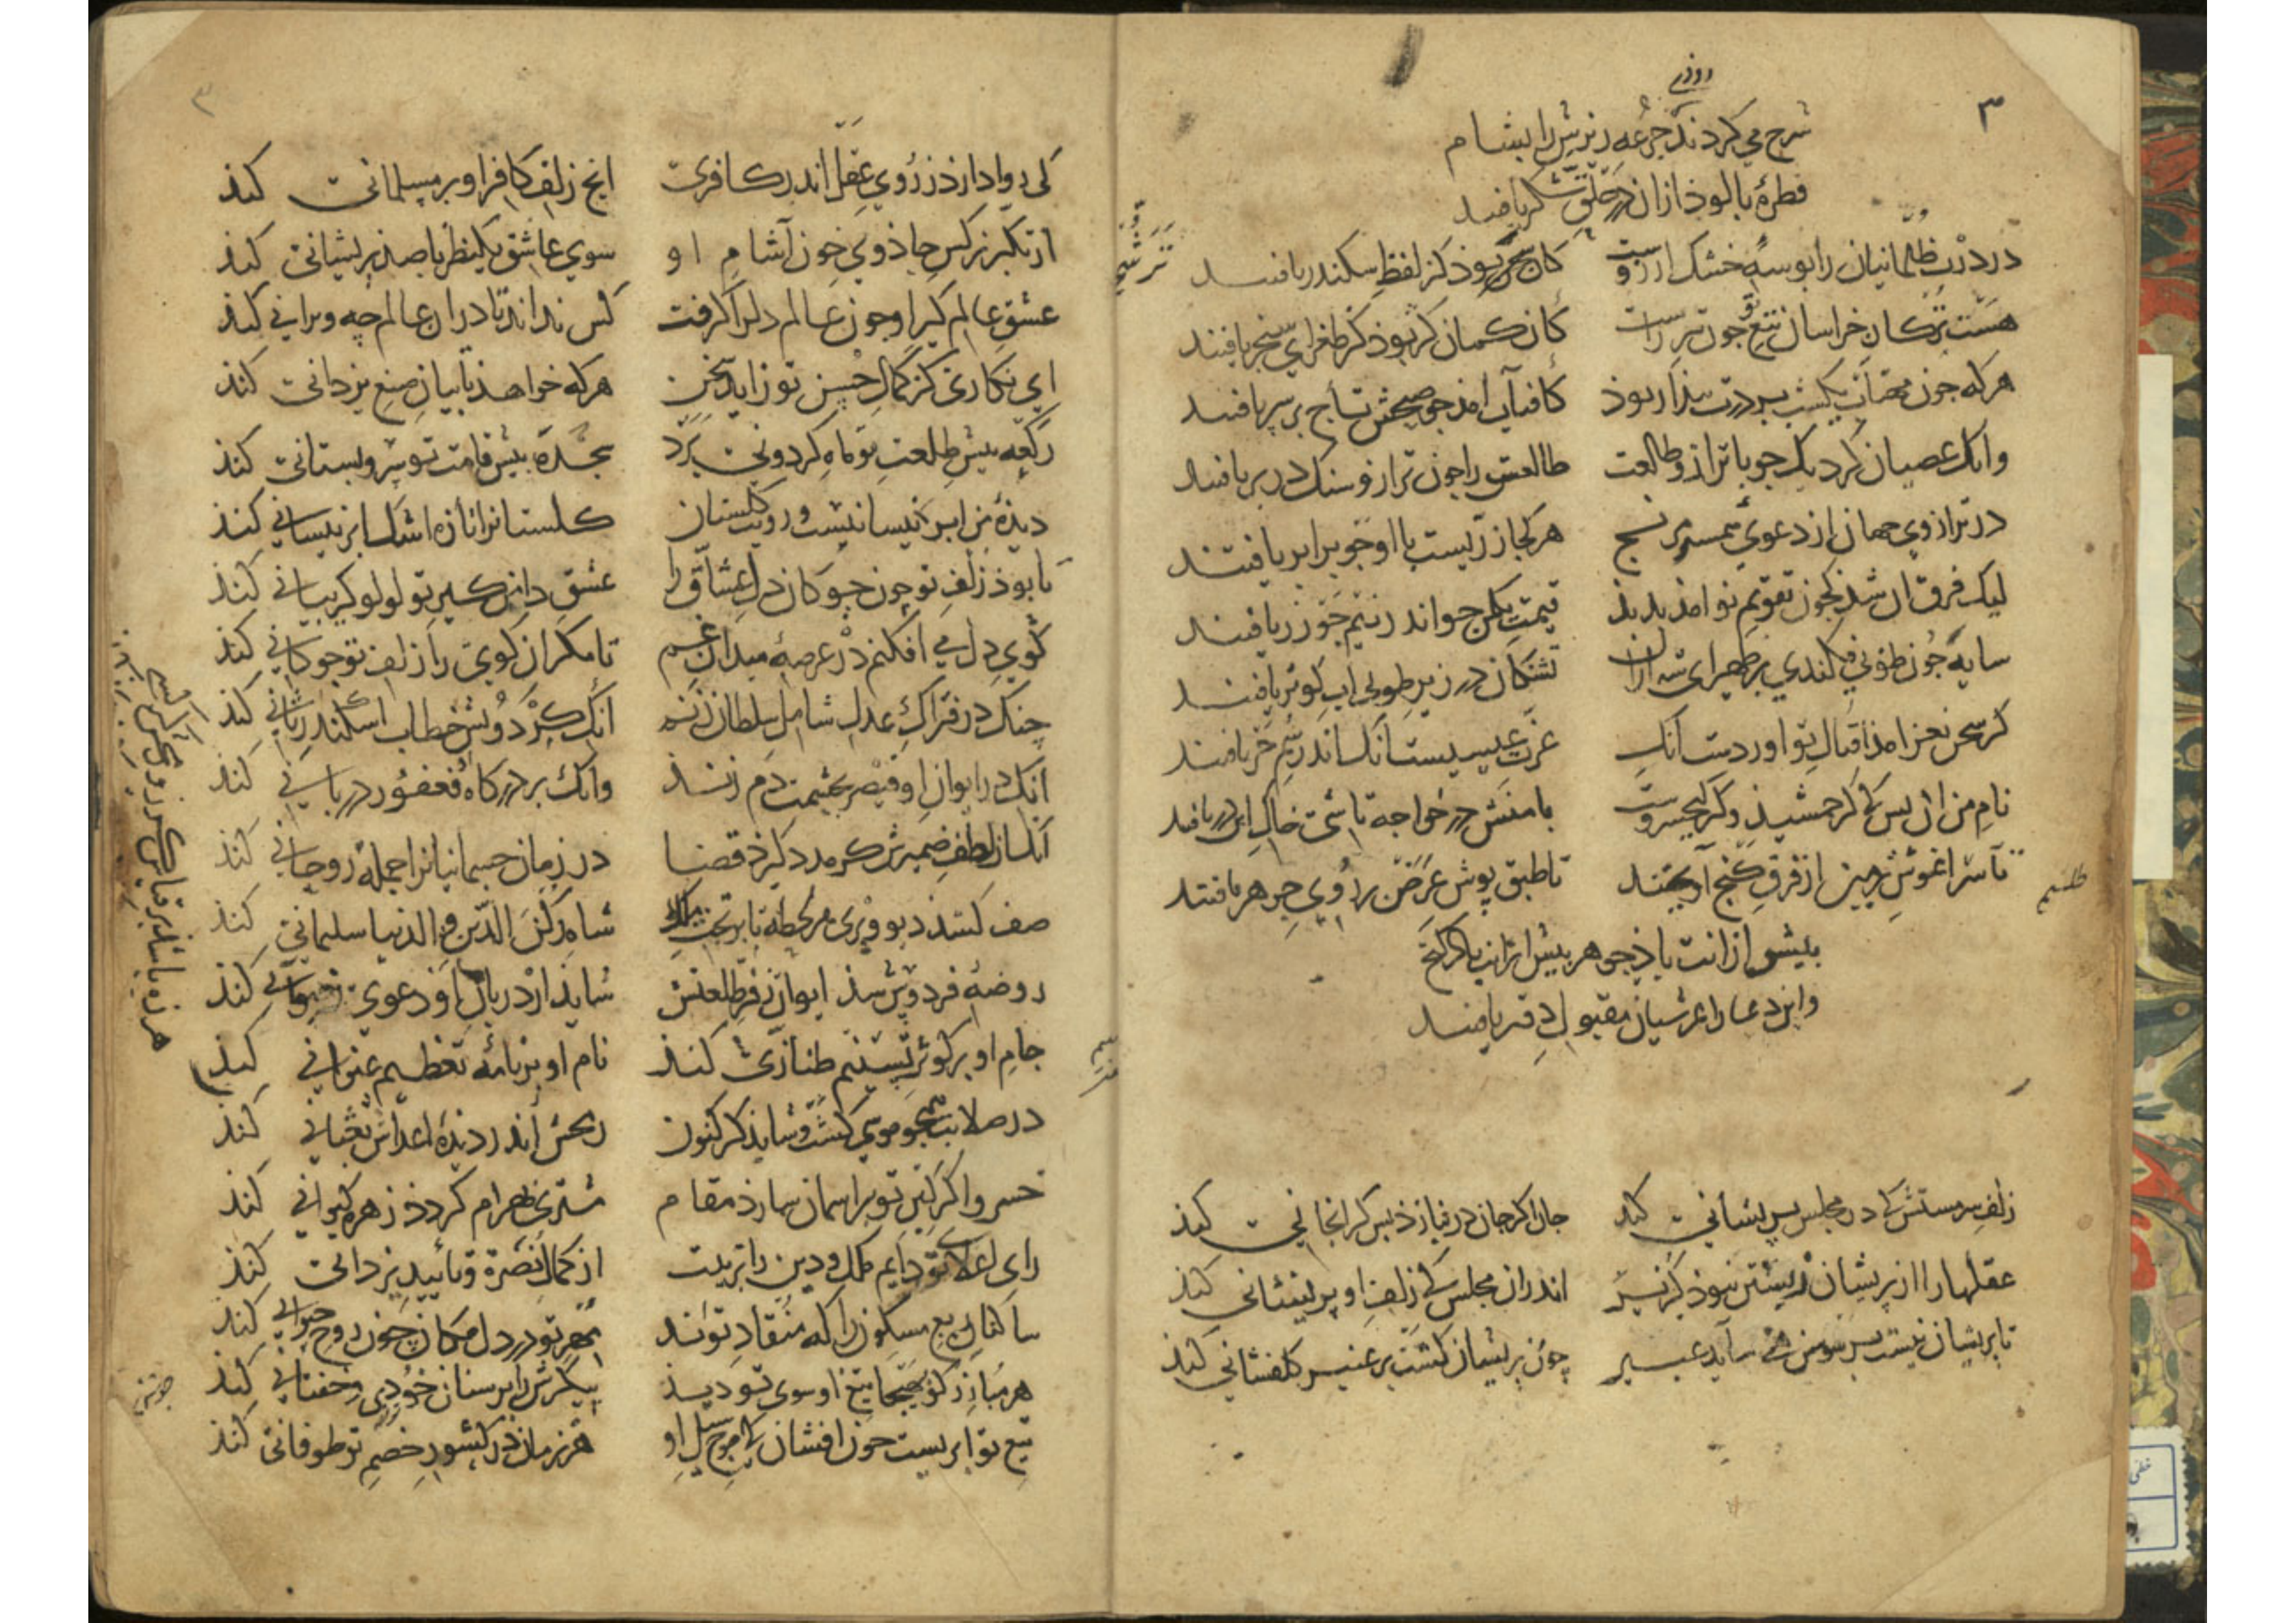 ۳
روزی
شرح می کردند جرعه ریزش را بشام
قطرهٔ بالوذ ازان در حلق شکر یافتند
در درت ظلمانیان را بوسهٔ خشک ارزوست
کان بحر بوذ کز لفظ سکندر یافتند
هست ترکان خراسان تیغ تو جون تیر راست
کان کمان کر بوذ کز طغرای سنجر یافتند
هرکه جون مهتاب یکشب بر درت بیدار بوذ
کافتاب امذ جو صبحش تاج بر سر یافتند
وانک عصیان کرد یک جو با ترازو طالعت
طالعش را جون ترازو سنک در بر یافتند
در ترازوی جهان از دعوی همسر نسنج
هر کجا زریست با او جو برابر یافتند
لیک فرق ان شذ کجون تقویم نو امذ بدیذ
قیمت یکمن جو اندر نیم جو زر یافتند
سایه جون طوبی فکندی بر ظهیرای شه ازان
تشنکان در زیر طوبی اب کوثر یافتند
کر سخن نغز امذ اقبال تو اورد ست انک
عزت عیسیست انک اندر سم خر یافتند
نام من ان بس که کر جمشیذ و کر کیخسروست
با منش در خواجه تاشی خاک این در یافتند
تا سر اغوش زمین از فرق کنج آویختند
تا طبق پوش عرض بر روی جوهر یافتند
بیشو از انت باذ جوهر بیش ازان باذکر کنج
واین دعا را عرشیان مقبول در یافتند
زلف سرمستش که در مجلس پریشانی کند
جان اکر جان در نیازد بس کرانجانی کند
عقلها را از پریشان زیستن نبوذ کزیر
اندران مجلس که زلف او پریشانی کند
تا پریشان نیست بر سوسن همی ساید عبیر
چون پریشان کشت بر عنبر کلفشانی کند
ترشح
طلسم
۳
کی روا دارذ ز روی عقل اندر کافری
انچ زلف کافر او بر مسلمانی کنذ
از تکبر نرکس جاذوی خون آشام او
سوی عاشق یکنظر با صذ پریشانی کنذ
عشق عالم کیر او جون عالم دلرا کرفت
کس نداند تا دران عالم چه ویرانی کنذ
ای نکاری کز کمال حسن تو زاید سخن
هرکه خواهذ تا بیان صنع یزدانی کنذ
رکعه پیش طلعت تو ماه کردونی برد
سجده پیش قامت تو سرو بستانی کنذ
دیدهٔ من ابر نیسانیست و رویت کلستان
کلستانرا تازه اشک ابر نیسانی کنذ
تا بوذ زلف تو چون چوکان دل عشاق را
عشق دامن کیر تو لولو کریبانی کنذ
کوی دل می افکنم در عرصهٔ میدان غم
تا مکر ان کوی را زلف تو جوکانی کنذ
چنک در فتراک عدل شامل سلطان زنم
انک کردونش خطاب اسکندر ثانی کنذ
انک در ایوان او قیصر بحشمت دم زند
وانک بر درکاه فغفور دربانی کنذ
انک از لطف ضمیرش کر مدد کیرذ قضا
در زمان جسمانیانرا جمله روحانی کنذ
صف کشند دیو و پری هر لحظه تا بر تخت ملک
شاه رکن الدین و الدنیا سلیمانی کنذ
روضهٔ فردوس شذ ایوان ز فر طلعتش
شاید ار دربان او دعوی رضوانی کنذ
جام او بر کوثر و تسنیم طنازی کنذ
نام او بر نامهٔ تعظیم عنوانی کنذ
در صلابت همجو موسی کشت و شایذ کر کنون
رمحش اندر دیدهٔ اعداش ثعبانی کنذ
خسروا کر کین تو بر اسمان سازد مقام
مشتری بهرام کردذ زهره کیوانی کنذ
رای اعلای تو دایم ملک و دین را تربیت
از کمال نصرة و تایید یزدانی کنذ
ساکنان ربع مسکون را که منقاد تواند
مهر تو در دل مکان چون روح حیوانی کنذ
هر مبارز کو بهیجا تیغ او سوی تو دید
پیکرش را بر سنان خود خفتانی کنذ
تیغ تو ابریست خون افشان که موج سیل او
هر زمان در کشور خصم تو طوفانی کنذ
جوشن